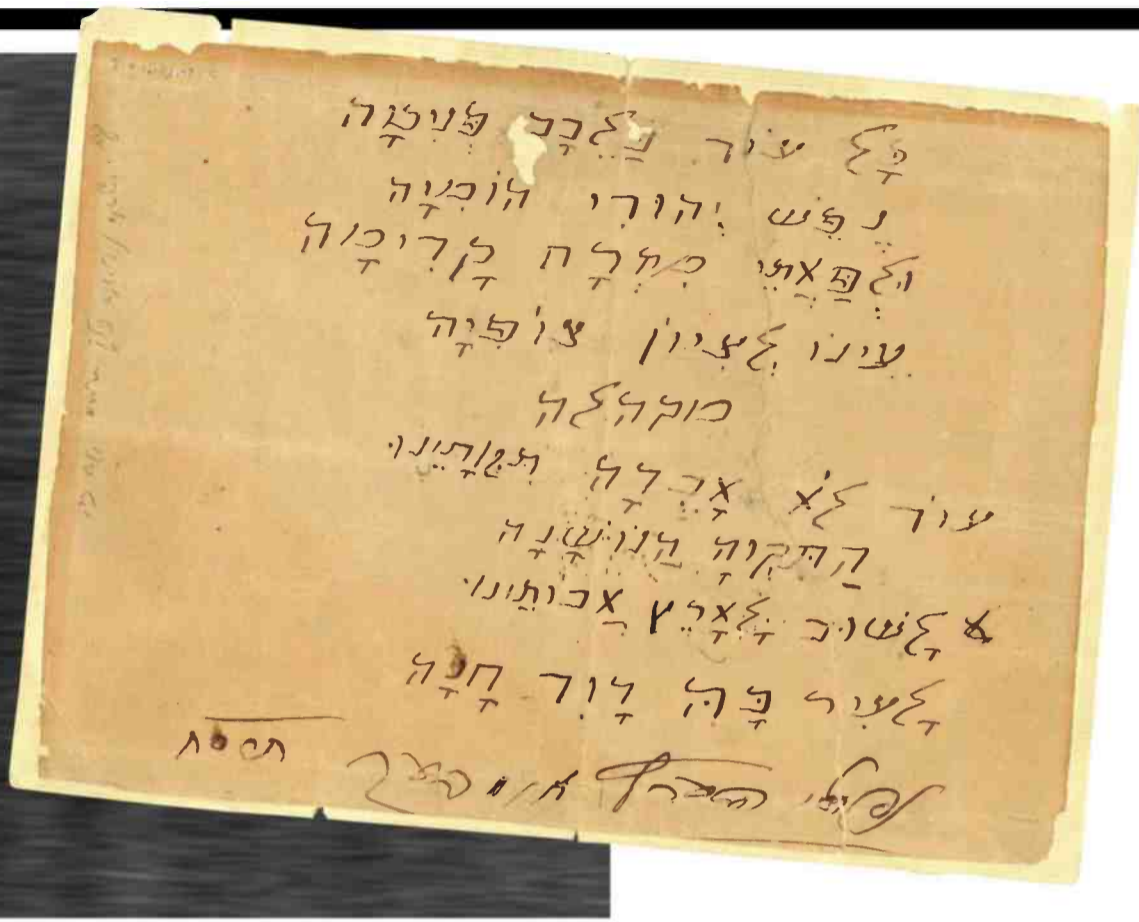 כָּל עוֹד בַּלֵּבָב פְּנִימָה
נֶפֶשׁ יְהוּדִי הוֹמִיָּה
וּלְפַאֲתֵי מִזְרָח קָדִימָה
עֵינוֹ לְצִיּוֹן צוֹפִיָּה
מוקהלה
עוֹד לֹא אָבְדָה תִּקְוָתֵינוּ
הַתִּקְוָה הַנּוֹשָׁנָה
לָשׁוּב לְאֶרֶץ אֲבוֹתֵינוּ
לָעִיר בָּהּ דָּוִד חָנָה
נפתלי הערץ אימבער